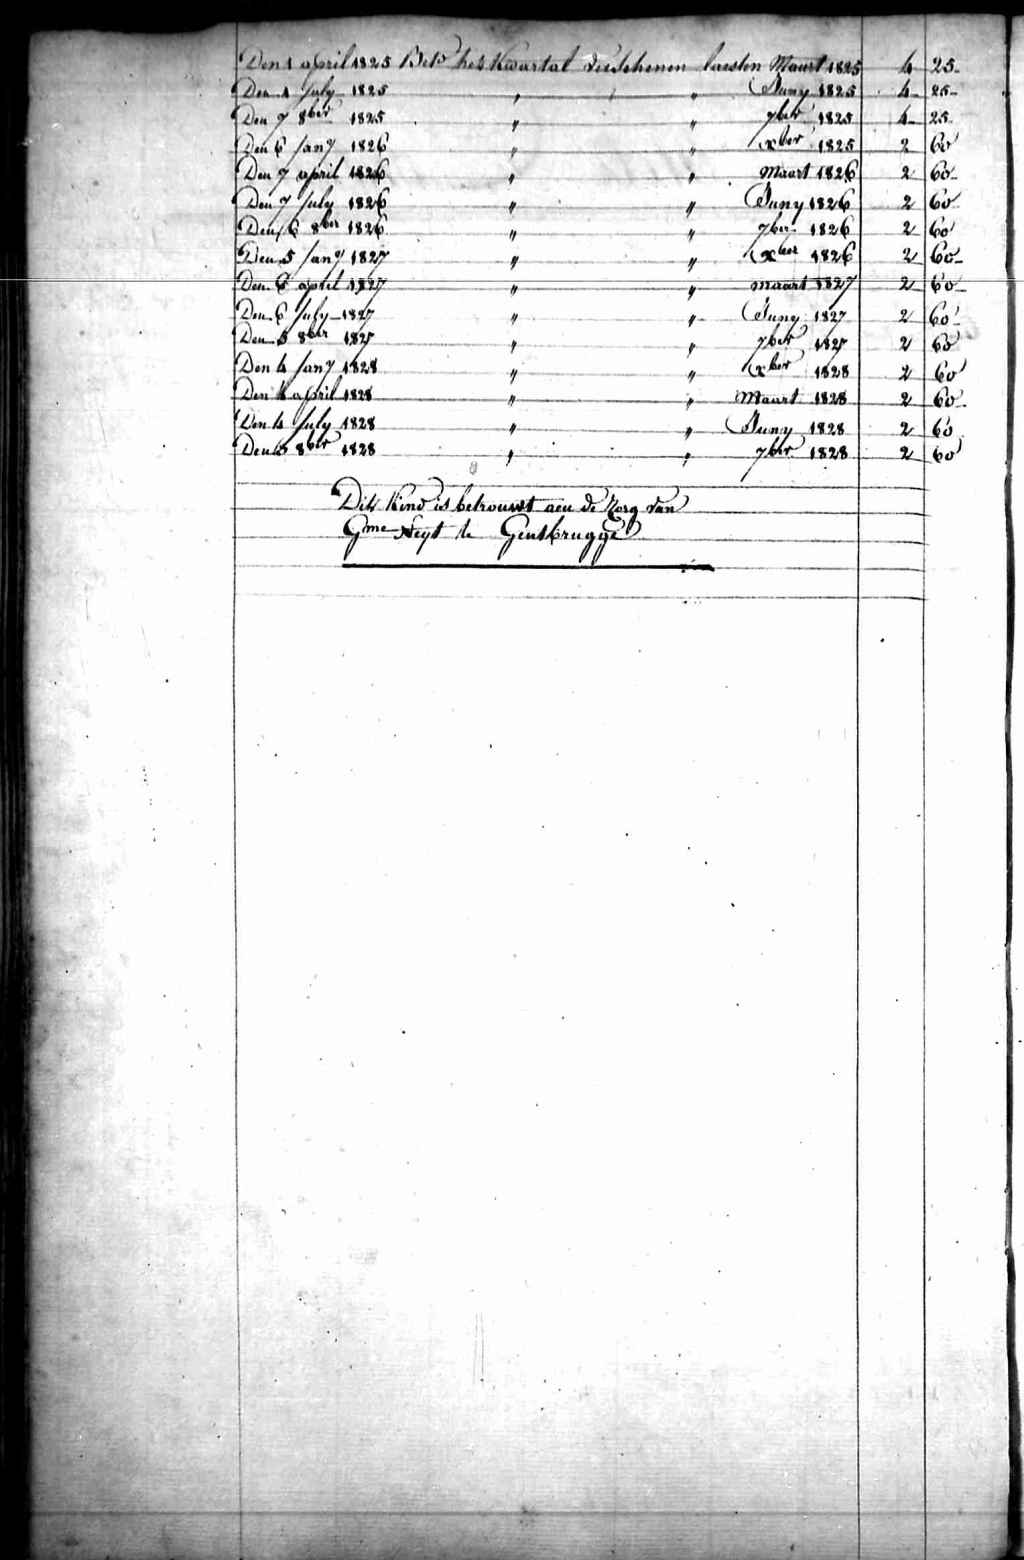 Den 1 april 1825 Beto het kwartal verschenen laesten Maart 1825 4 25
Den 1 July 1825 " " Juny 1825 4 25
Den 7 8ber 1825 " " 7ber 1825 4 25
Den 6 Jany 1826 " " xber 1825 2 60
Den 7 april 1826 " " Maart 1826 2 60
Den 7 July 1826 " " Juny 1826 2 60
Den 6 8ber 1826 " " 7ber 1826 2 60
Den 5 Jany 1827 " " xber 1826 2 60
Den 6 april 1827 " " maart 1827 2 60
Den 6 July 1827 " " Juny 1827 2 60
Den 5 8ber 1827 " " 7ber 1827 2 60
Den 4 Jany 1828 " " xber 1828 2 60
Den april 1828 " " Maart 1828 2 60
Den 4 July 1828 " " Juny 1828 2 60
Den 8ber 1828 " " 7ber 1828 2 60
Dit kind is betrouwt aen de Zorg van
Gme Neyt te Gentbrugge